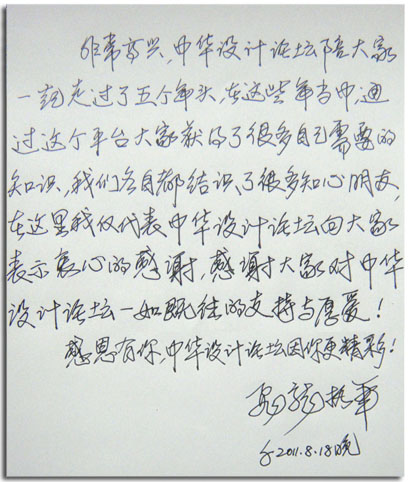 非常高兴,中华设计论坛陪大家
一起走过了五个年头,在这些年当中,通
过这个平台大家获得了很多自己需要的
知识、我们各自都结识了很多知心朋友,
在这里我仅代表中华设计论坛向大家
表示衷心的感谢,感谢大家对中华
设计论坛一如既往的支持与厚爱!
感恩有你,中华设计论坛因你更精彩!
于2011.8.18晚